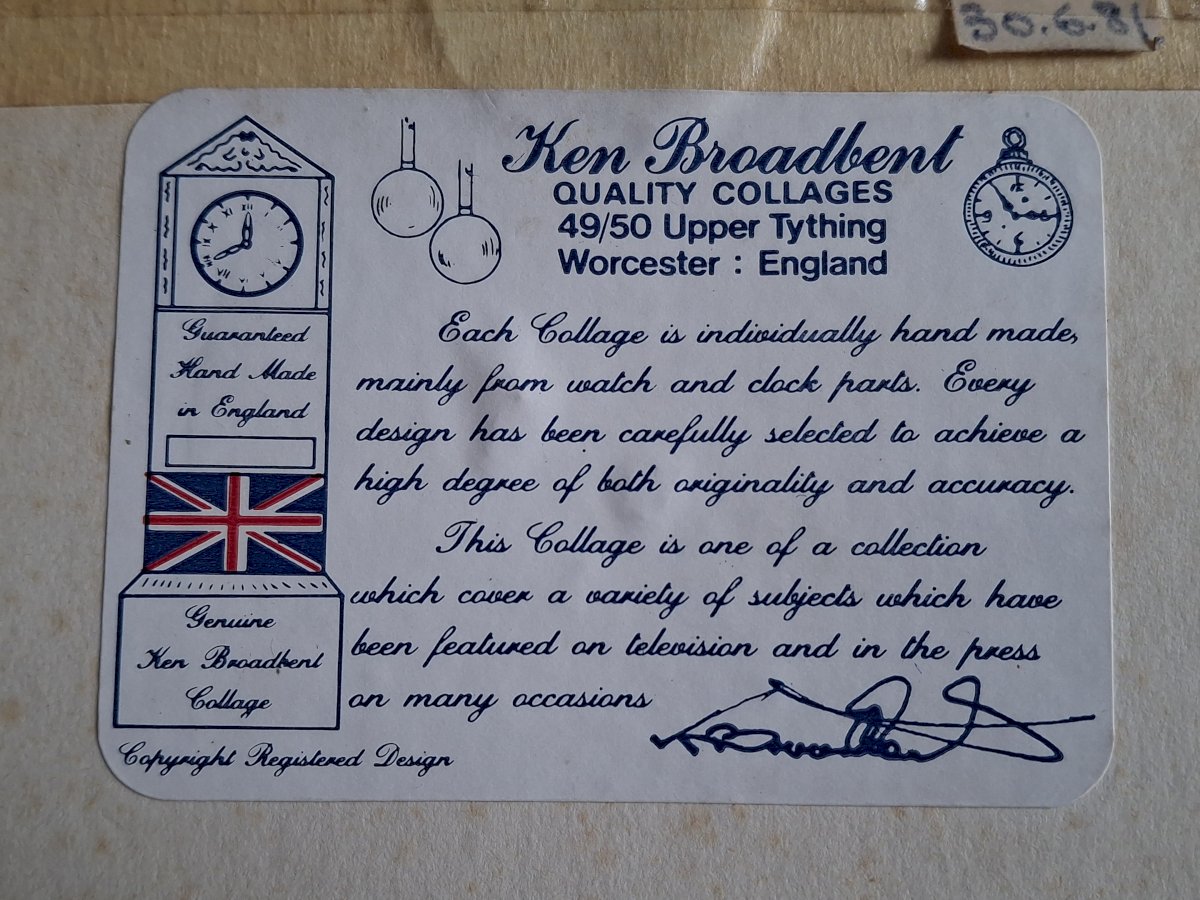 30.6.81
Ken Broadbent
QUALITY COLLAGES
49/50 Upper Tything
Worcester : England
Guaranteed
Hand Made
in England
Each Collage is individually hand made,
mainly from watch and clock parts. Every
design has been carefully selected to achieve a
high degree of both originality and accuracy.
This Collage is one of a collection
which cover a variety of subjects which have
been featured on television and in the press
on many occasions
Genuine
Ken Broadbent
Collage
Copyright Registered Design